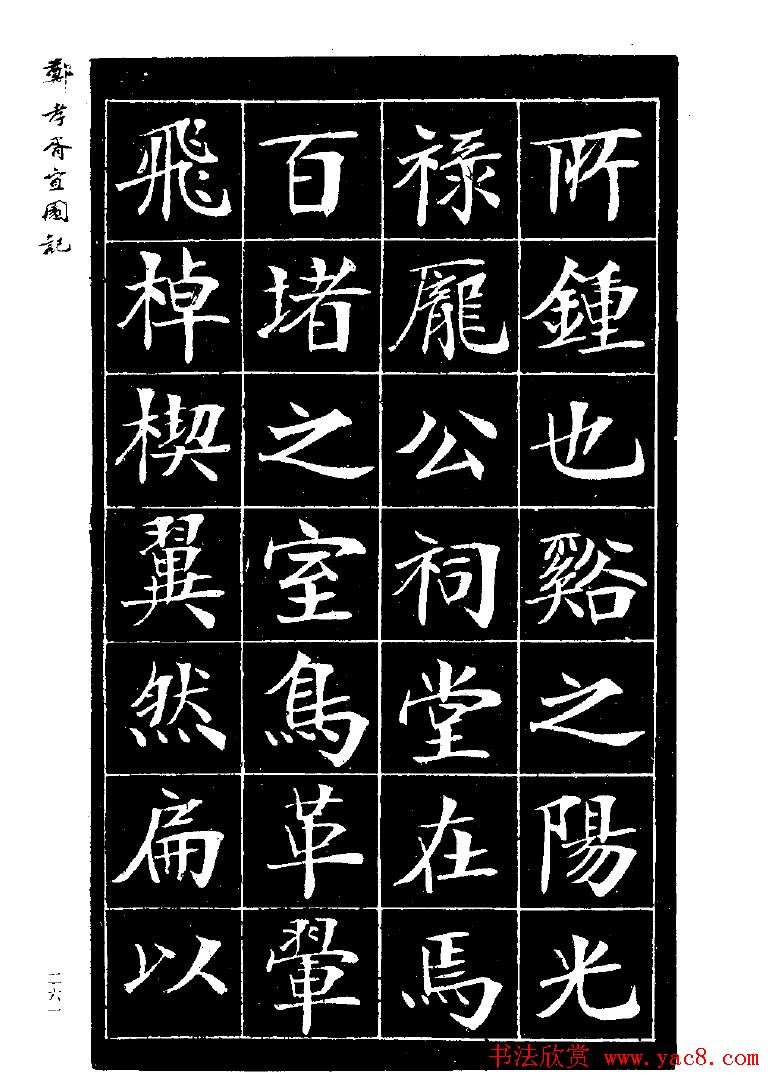 所鍾也谿之陽光
禄龎公祠堂在焉
百堵之室鳥革翬
飛棹楔翼然扁以
鄭孝胥宜園記
二六一
书法欣赏 www.yac8.com